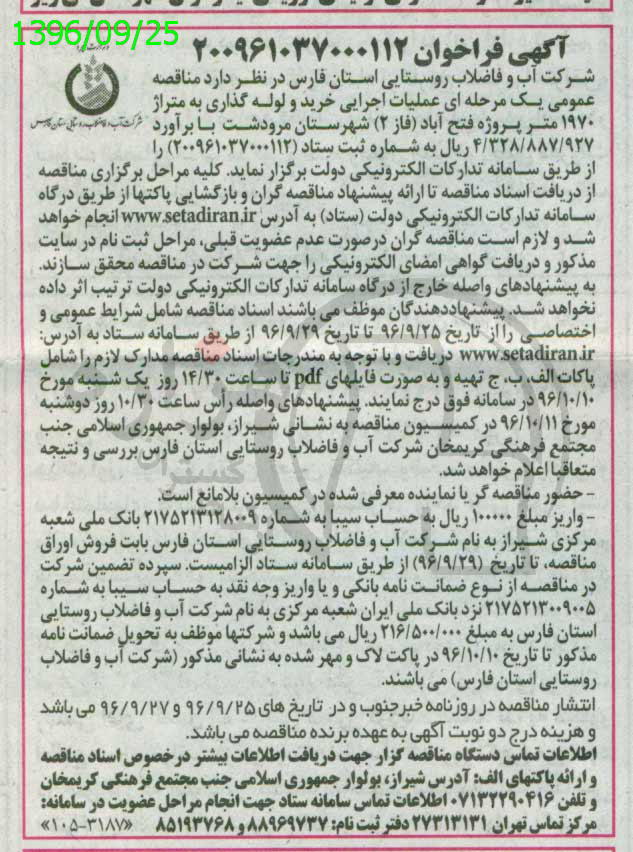 1396/09/25
آگهی فراخوان ۲۰۰۹۶۱۰۳۷۰۰۰۱۱۲
شرکت آب و فاضلاب روستایی استان فارس
شرکت آب و فاضلاب روستایی استان فارس در نظر دارد مناقصه
عمومی یک مرحله ای عملیات اجرایی خرید و لوله گذاری به متراژ
۱۹۷۰ متر پروژه فتح آباد (فاز ۲) شهرستان مرودشت با برآورد
۴/۳۲۸/۸۸۷/۹۲۷ ریال به شماره ثبت ستاد (۲۰۰۹۶۱۰۳۷۰۰۰۱۱۲) را
از طریق سامانه تدارکات الکترونیکی دولت برگزار نماید. کلیه مراحل برگزاری مناقصه
از دریافت اسناد مناقصه تا ارائه پیشنهاد مناقصه گران و بازگشایی پاکتها از طریق درگاه
سامانه تدارکات الکترونیکی دولت (ستاد) به آدرس www.setadiran.ir انجام خواهد
شد و لازم است مناقصه گران درصورت عدم عضویت قبلی، مراحل ثبت نام در سایت
مذکور و دریافت گواهی امضای الکترونیکی را جهت شرکت در مناقصه محقق سازند.
به پیشنهادهای واصله خارج از درگاه سامانه تدارکات الکترونیکی دولت ترتیب اثر داده
نخواهد شد. پیشنهاددهندگان موظف می باشند اسناد مناقصه شامل شرایط عمومی و
اختصاصی را از تاریخ ۹۶/۹/۲۵ تا تاریخ ۹۶/۹/۲۹ از طریق سامانه ستاد به آدرس:
www.setadiran.ir دریافت و با توجه به مندرجات اسناد مناقصه مدارک لازم را شامل
پاکات الف، ب، ج تهیه و به صورت فایلهای pdf تا ساعت ۱۴/۳۰ روز یک شنبه مورخ
۹۶/۱۰/۱۰ در سامانه فوق درج نمایند. پیشنهادهای واصله رأس ساعت ۱۰/۳۰ روز دوشنبه
مورخ ۹۶/۱۰/۱۱ در کمیسیون مناقصه به نشانی شیراز، بولوار جمهوری اسلامی جنب
مجتمع فرهنگی کریمخان شرکت آب و فاضلاب روستایی استان فارس بررسی و نتیجه
متعاقبا اعلام خواهد شد.
- حضور مناقصه گر یا نماینده معرفی شده در کمیسیون بلامانع است.
- واریز مبلغ ۱۰۰۰۰۰ ریال به حساب سیبا به شماره ۲۱۷۵۲۱۳۱۲۸۰۰۹ بانک ملی شعبه
مرکزی شیراز به نام شرکت آب و فاضلاب روستایی استان فارس بابت فروش اوراق
مناقصه، تا تاریخ (۹۶/۹/۲۹) از طریق سامانه ستاد الزامیست. سپرده تضمین شرکت
در مناقصه از نوع ضمانت نامه بانکی و یا واریز وجه نقد به حساب سیبا به شماره
۲۱۷۵۲۱۳۰۰۹۰۰۵ نزد بانک ملی ایران شعبه مرکزی به نام شرکت آب و فاضلاب روستایی
استان فارس به مبلغ ۲۱۶/۵۰۰/۰۰۰ ریال می باشد و شرکتها موظف به تحویل ضمانت نامه
مذکور تا تاریخ ۹۶/۱۰/۱۰ در پاکت لاک و مهر شده به نشانی مذکور (شرکت آب و فاضلاب
روستایی استان فارس) می باشند.
انتشار مناقصه در روزنامه خبرجنوب و در تاریخ های ۹۶/۹/۲۵ و ۹۶/۹/۲۷ می باشد
و هزینه درج دو نوبت آگهی به عهده برنده مناقصه می باشد.
اطلاعات تماس دستگاه مناقصه گزار جهت دریافت اطلاعات بیشتر درخصوص اسناد مناقصه
و ارائه پاکتهای الف: آدرس شیراز، بولوار جمهوری اسلامی جنب مجتمع فرهنگی کریمخان
و تلفن ۰۷۱۳۲۲۹۰۴۱۶ اطلاعات تماس سامانه ستاد جهت انجام مراحل عضویت در سامانه:
مرکز تماس تهران ۲۷۳۱۳۱۳۱ دفتر ثبت نام: ۸۸۹۶۹۷۳۷ و ۸۵۱۹۳۷۶۸ «۱۰۵-۳۱۸۷»